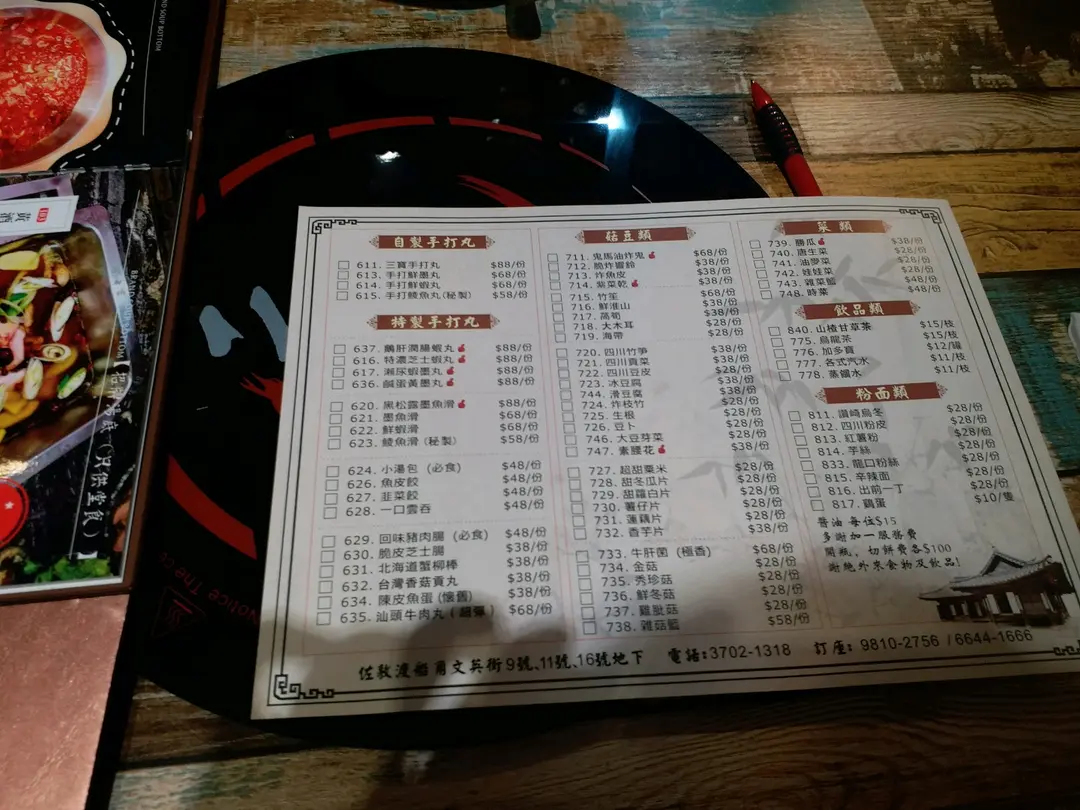 自製手打丸
611. 三寶手打丸 $88/份
613. 手打鮮墨丸 $68/份
614. 手打鮮蝦丸 $68/份
615. 手打鯪魚丸(秘製) $58/份
特製手打丸
637. 鵝肝潤腸蝦丸 $88/份
616. 特濃芝士蝦丸 $88/份
617. 瀨尿蝦墨丸 $88/份
636. 鹹蛋黃墨丸 $88/份
620. 黑松露墨魚滑 $88/份
621. 墨魚滑 $68/份
622. 鮮蝦滑 $68/份
623. 鯪魚滑 (秘製) $58/份
624. 小湯包 (必食) $48/份
626. 魚皮餃 $48/份
627. 韮菜餃 $48/份
628. 一口雲吞 $48/份
629. 回味豬肉腸 (必食) $48/份
630. 脆皮芝士腸 $38/份
631. 北海道蟹柳棒 $38/份
632. 台灣香菇貢丸 $38/份
634. 陳皮魚蛋(懷舊) $38/份
635. 汕頭牛肉丸(超彈) $68/份
菇豆類
711. 鬼馬油炸鬼 $68/份
712. 脆炸響鈴 $38/份
713. 炸魚皮 $38/份
714. 紫菜乾 $38/份
715. 竹笙 $68/份
716. 鮮淮山 $38/份
717. 萵筍 $38/份
718. 大木耳 $28/份
719. 海帶 $28/份
720. 四川竹笋 $38/份
721. 四川貢菜 $38/份
722. 四川豆皮 $28/份
723. 冰豆腐 $38/份
744. 滑豆腐 $38/份
724. 炸枝竹 $28/份
725. 生根 $28/份
726. 豆卜 $28/份
746. 大豆芽菜 $28/份
747. 素腰花 $38/份
727. 超甜粟米 $28/份
728. 甜冬瓜片 $28/份
729. 甜蘿白片 $28/份
730. 薯仔片 $28/份
731. 蓮藕片 $28/份
732. 香芋片 $38/份
733. 牛肝菌 (極香) $68/份
734. 金菇 $28/份
735. 秀珍菇 $28/份
736. 鮮冬菇 $28/份
737. 雞肶菇 $28/份
738. 雜菇籃 $58/份
菜類
739. 勝瓜 $38/份
740. 唐生菜 $28/份
741. 油麥菜 $28/份
742. 娃娃菜 $28/份
743. 雜菜籃 $48/份
748. 時菜 $48/份
飲品類
840. 山楂甘草茶 $15/枝
775. 烏龍茶 $15/枝
776. 加多寶 $12/罐
777. 各式汽水 $11/枝
778. 蒸餾水 $11/枝
粉面類
811. 讚崎烏冬 $28/份
812. 四川粉皮 $28/份
813. 紅薯粉 $28/份
814. 芋絲 $28/份
833. 龍口粉絲 $28/份
815. 辛辣面 $28/份
816. 出前一丁 $28/份
817. 鷄蛋 $10/隻
醬油 每位$15
多謝加一服務費
開瓶, 切餅費各$100
謝絕外來食物及飲品!
佐敦渡船角文英街9號、11號、16號地下 電話:3702-1318 訂座: 9810-2756 /6644-1666
Notice The
(只供堂食)